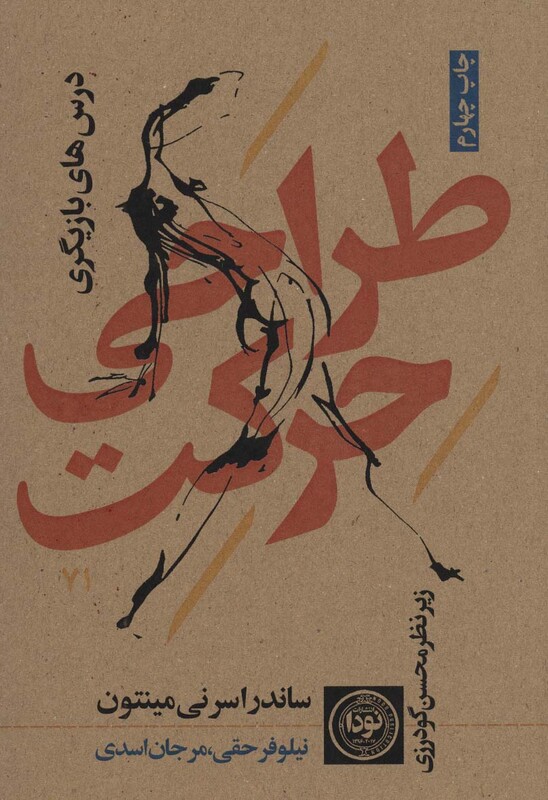 درس های بازیگری
چاپ چهارم
طراحی
حرکت
۷۱
زیر نظر محسن گودرزی
ساندرا سرنی مینتون
نیلوفر حقی، مرجان اسدی
انتشارات
نودا